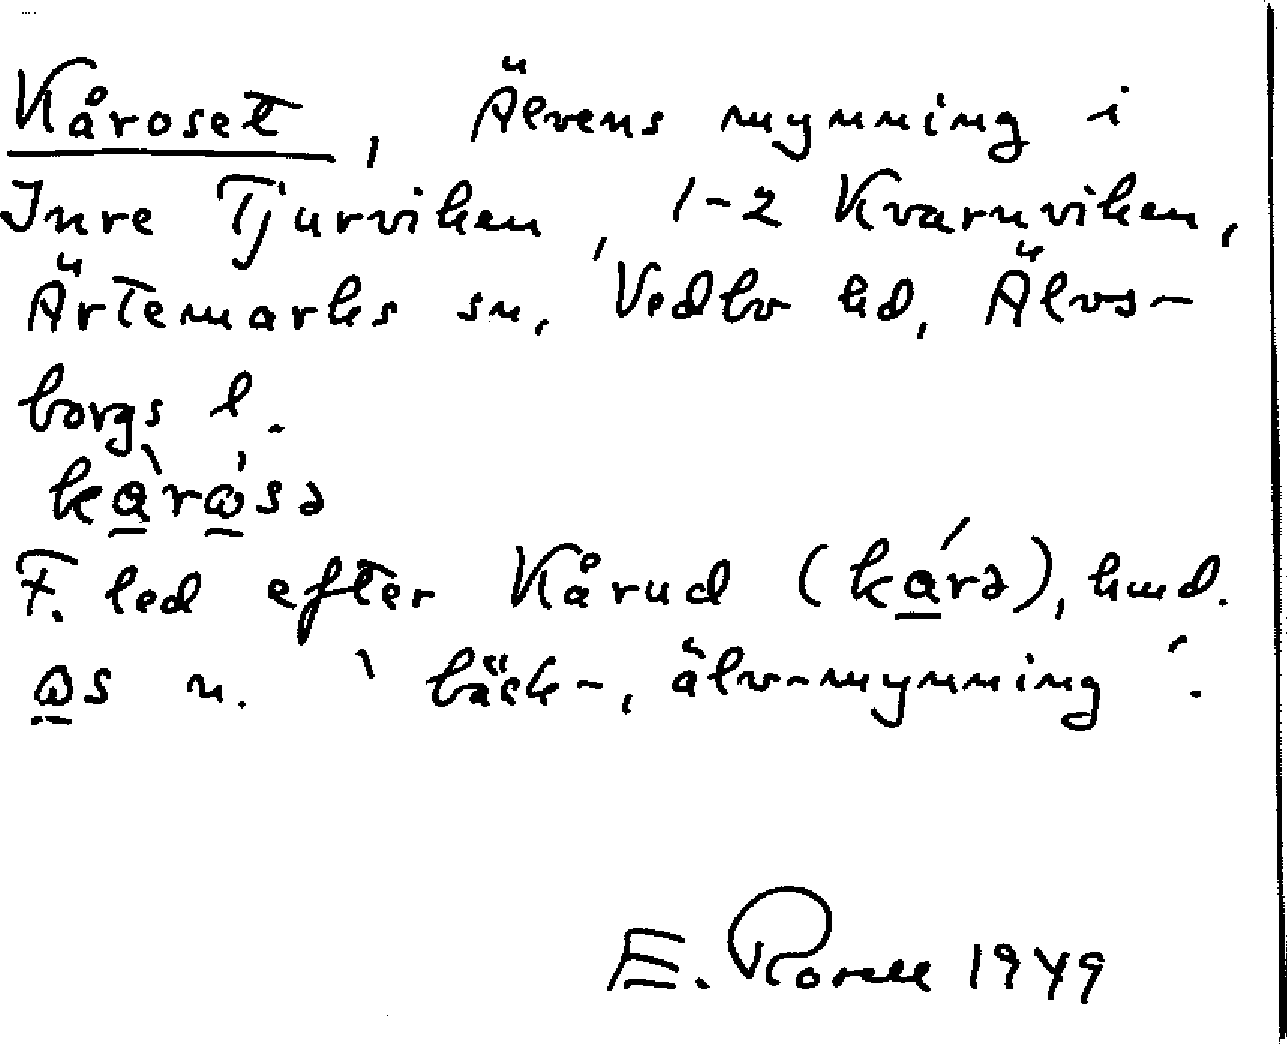 Kåroset, Älvens mynning i
Inre Tjurviken, 1-2 Kvarnviken,
Ärtemarks sn, Vedbo hd, Älvs-
borgs l.
kà̲rώ̲sə
F. led efter Kårud (ká̲rə), hmd.
ω̲s n. 'bäck-, älv-mynning'.
E. Rorell 1949